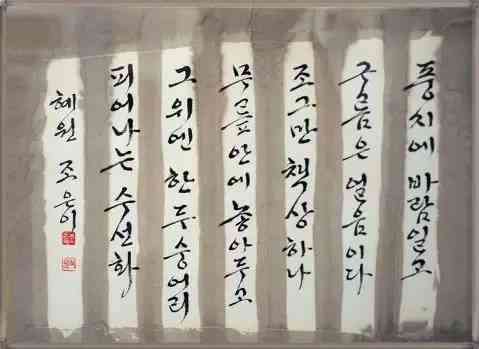 풍지에 바람일고
구들은 얼음이다
조그만 책상 하나
무릎 앞에 놓아두고
그 위엔 한두 숭어리
피어나는 수선화
혜원 조은이